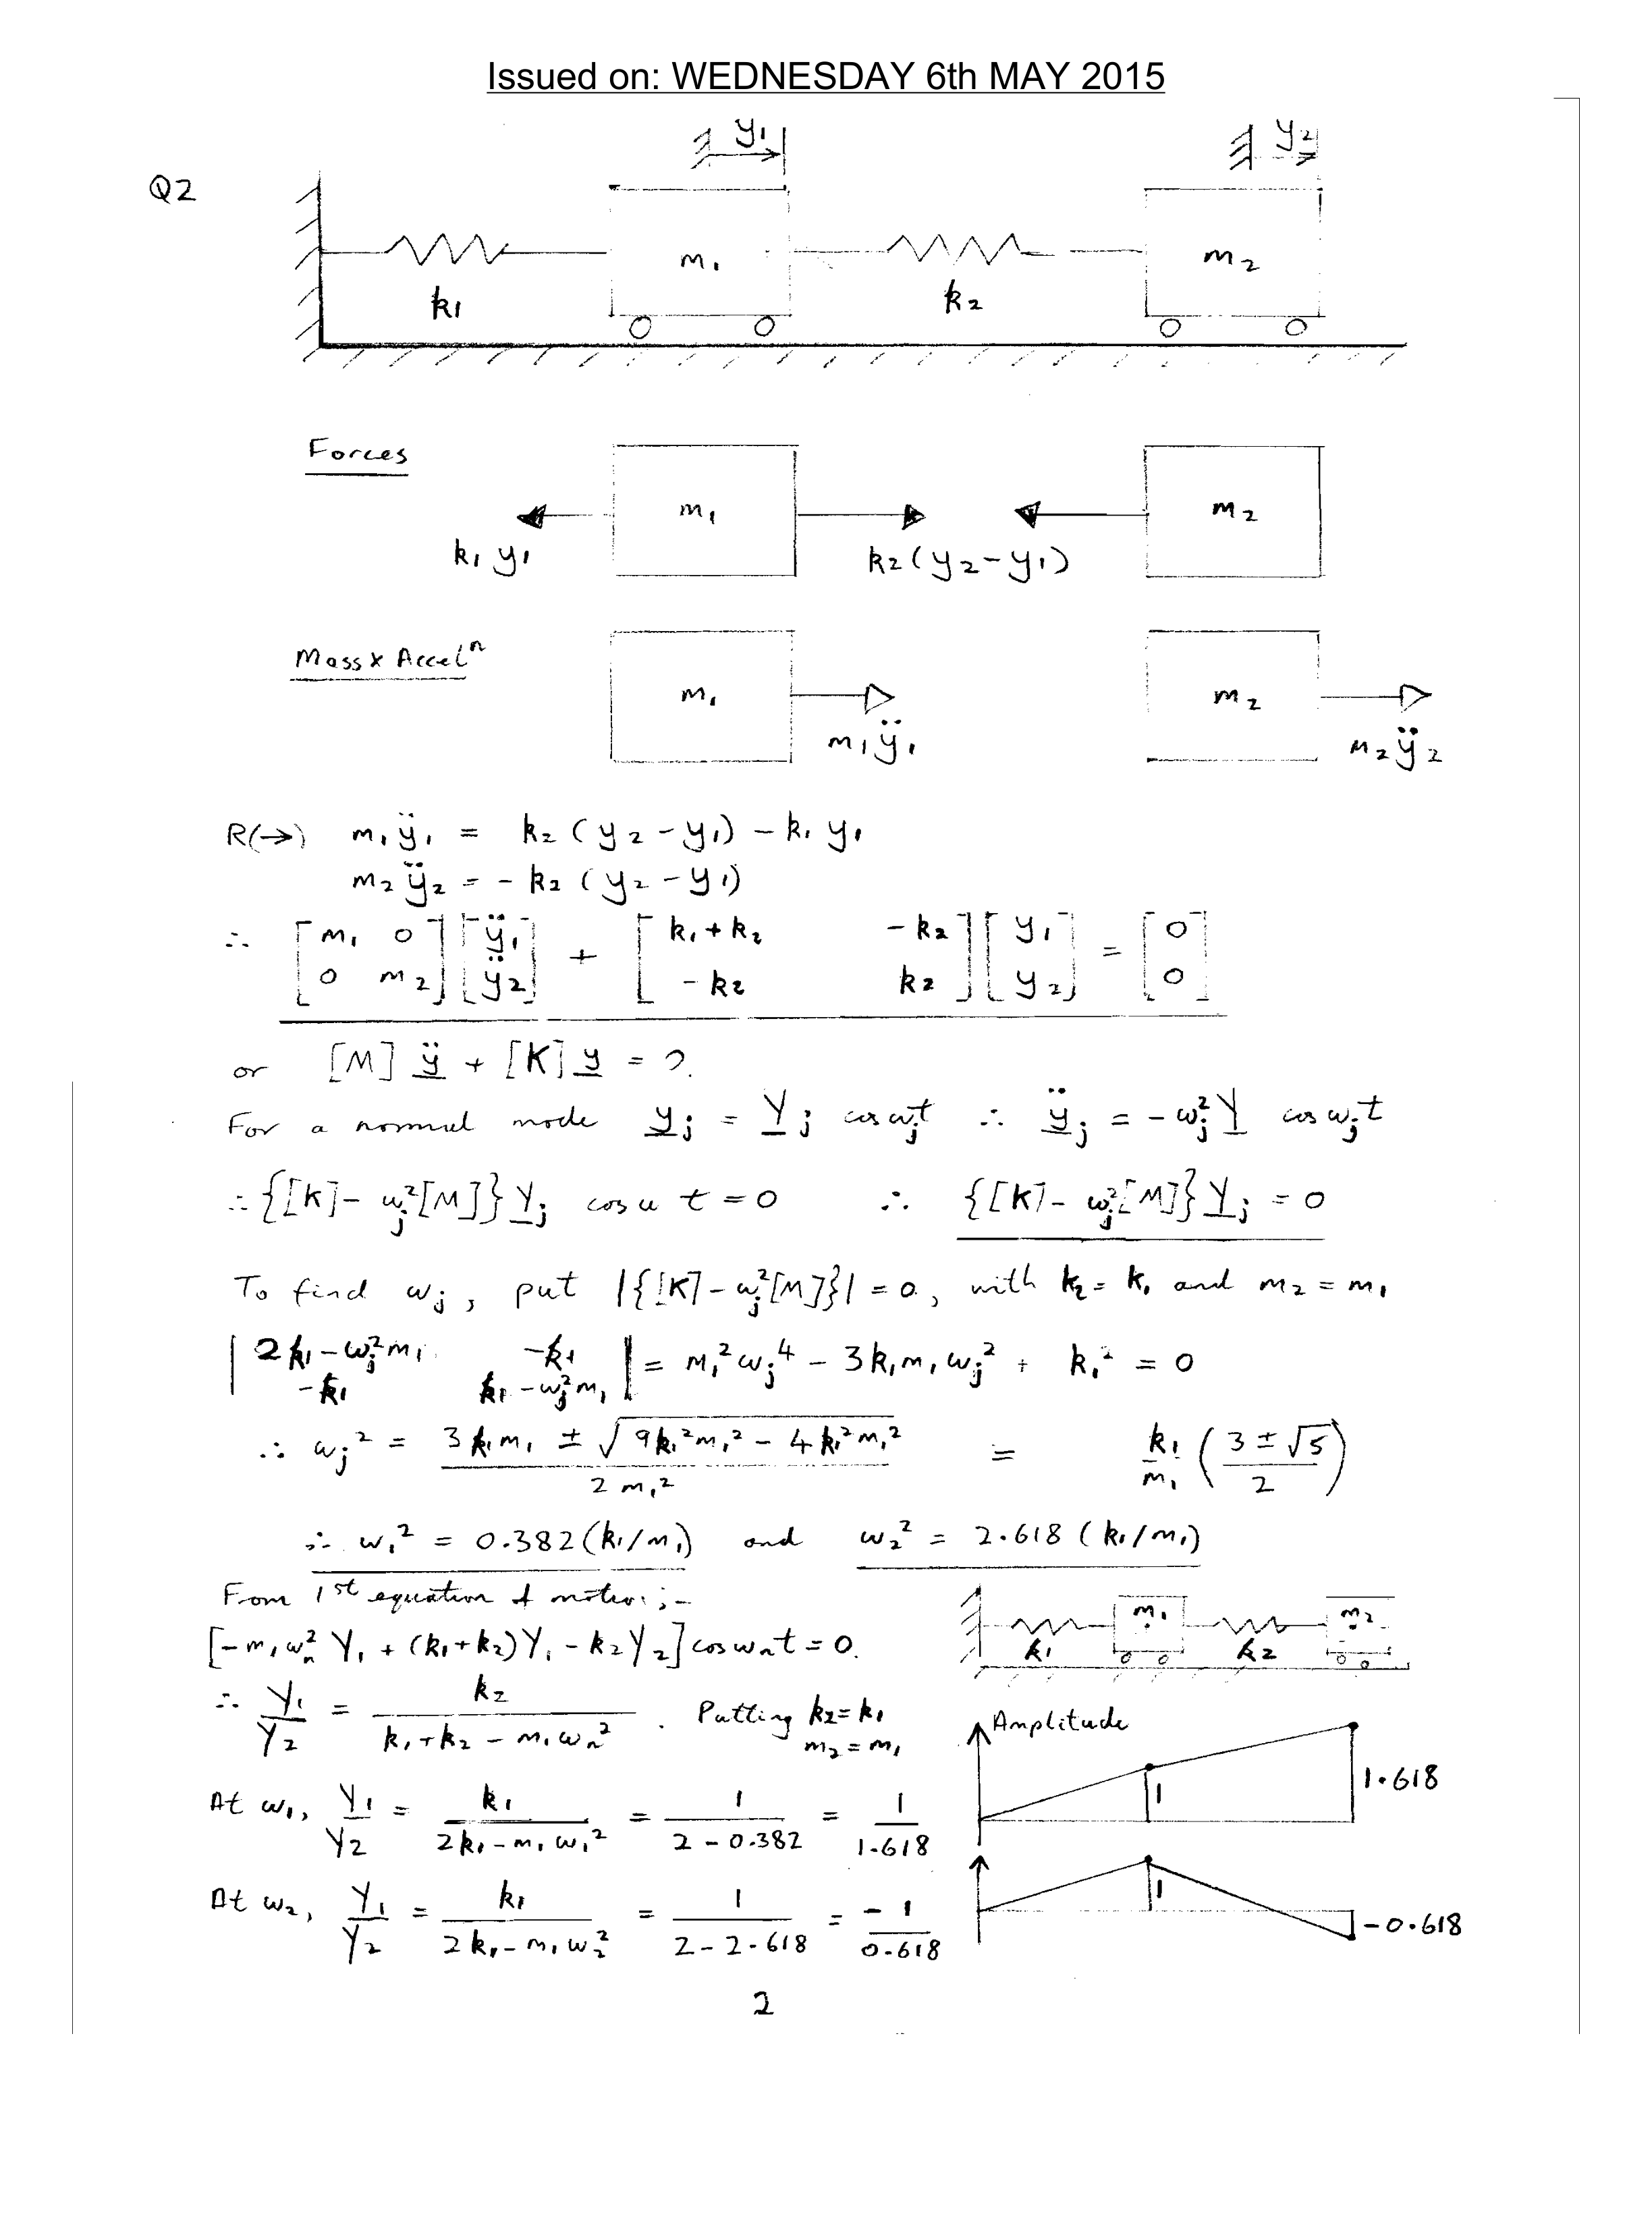 Issued on: WEDNESDAY 6th MAY 2015
y₁ y₂
Q2
m₁ m₂
k₁ k₂
Forces
m₁ m₂
k₁ y₁ k₂(y₂-y₁)
Mass x Accelⁿ
m₁ m₂
m₁ÿ₁ m₂ÿ₂
R(→) m₁ÿ₁ = k₂(y₂-y₁) - k₁y₁
m₂ÿ₂ = -k₂(y₂-y₁)
∴ [m₁ 0; 0 m₂][ÿ₁; ÿ₂] + [k₁+k₂ -k₂; -k₂ k₂][y₁; y₂] = [0; 0]
or [M]ÿ + [K]y = 0.
For a normal mode yⱼ = Yⱼ cos ωⱼt ∴ ÿⱼ = -ωⱼ²Y cos ωⱼt
∴ {[K] - ωⱼ²[M]}Yⱼ cos ω t = 0 ∴ {[K] - ωⱼ²[M]}Yⱼ = 0
To find ωⱼ, put |{[K] - ωⱼ²[M]}| = 0, with k₂ = k₁ and m₂ = m₁
|2k₁-ωⱼ²m₁ -k₁; -k₁ k₁-ωⱼ²m₁| = m₁²ωⱼ⁴ - 3k₁m₁ωⱼ² + k₁² = 0
∴ ωⱼ² = (3k₁m₁ ± √(9k₁²m₁² - 4k₁²m₁²)) / 2m₁² = k₁/m₁ ((3 ± √5)/2)
∴ ω₁² = 0.382(k₁/m₁) and ω₂² = 2.618(k₁/m₁)
From 1st equation of motion:-
[-m₁ωₙ²Y₁ + (k₁+k₂)Y₁ - k₂Y₂] cos ωₙt = 0.
m₁ m₂
k₁ k₂
∴ Y₁/Y₂ = k₂/(k₁+k₂-m₁ωₙ²). Putting k₂=k₁
m₂=m₁
Amplitude
1 1.618
At ω₁, Y₁/Y₂ = k₁/(2k₁-m₁ω₁²) = 1/(2-0.382) = 1/1.618
At ω₂, Y₁/Y₂ = k₁/(2k₁-m₁ω₂²) = 1/(2-2.618) = -1/0.618
1 -0.618
2